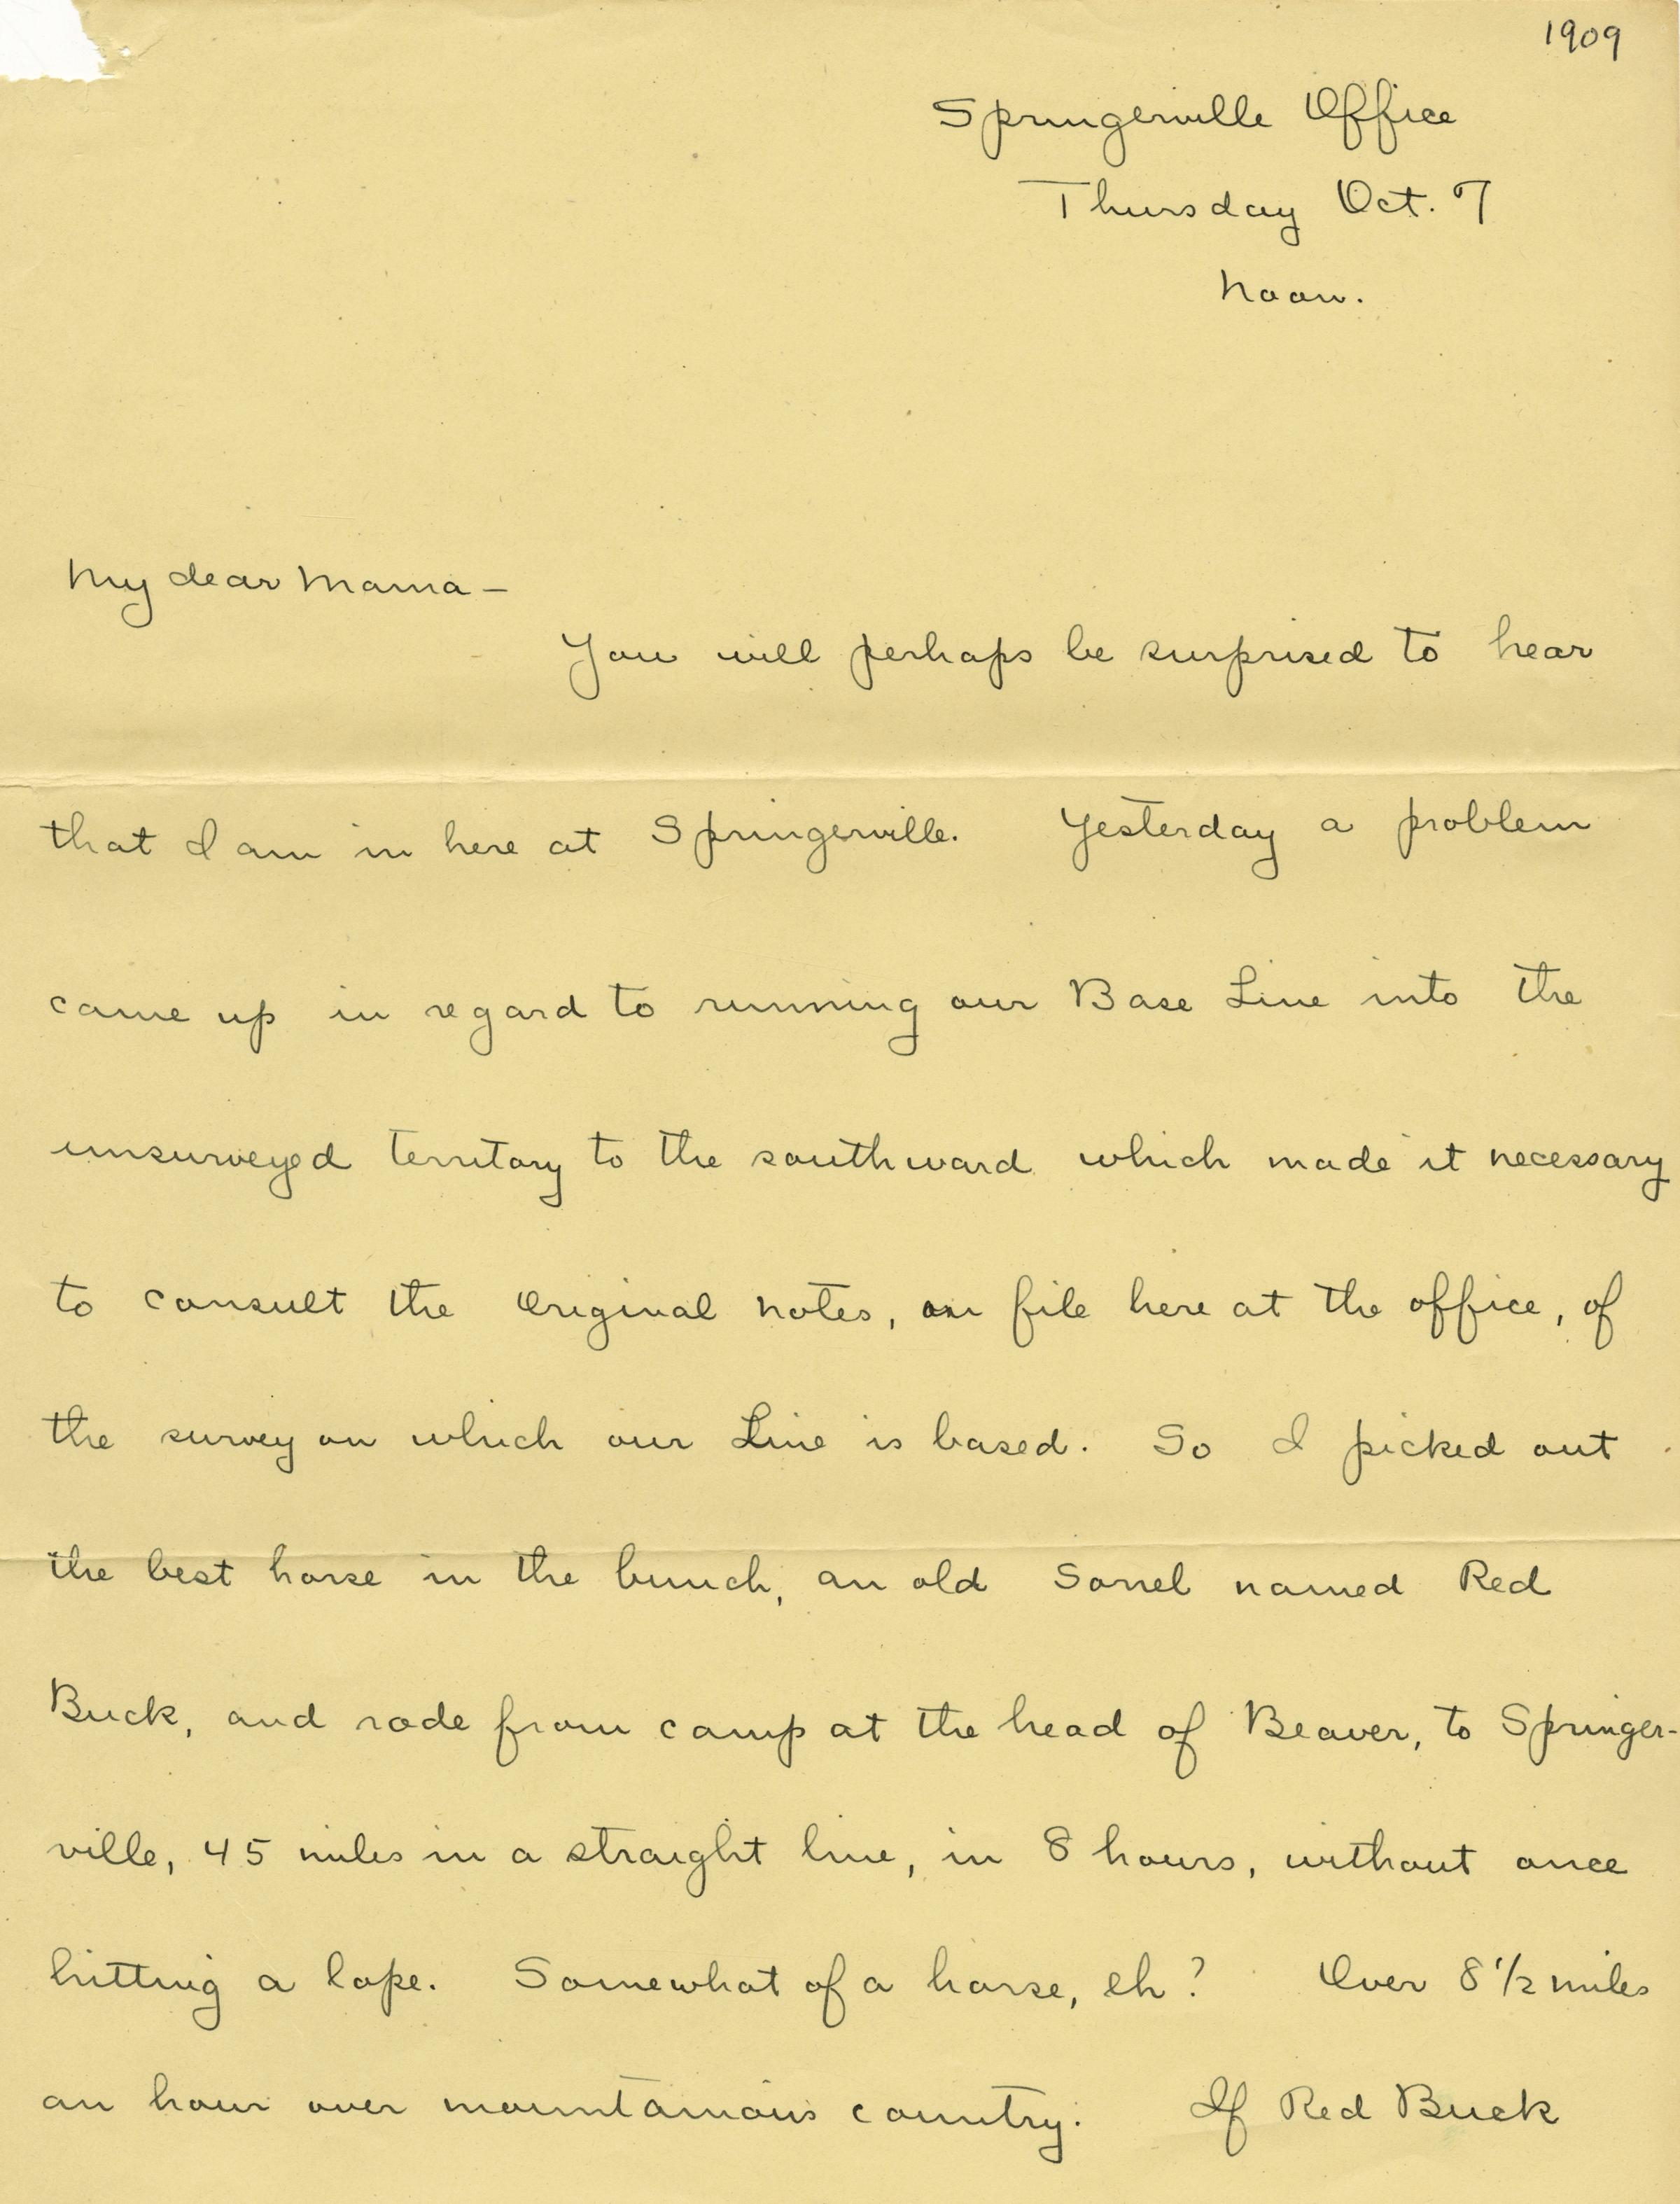 1909
Springerville Office
Thursday Oct. 7
Noon.
My dear Mama —
You will perhaps be surprised to hear
that I am in here at Springerville. Yesterday a problem
came up in regard to running our Base Line into the
unsurveyed territory to the southward which made it necessary
to consult the original notes, on file here at the office, of
the survey on which our Line is based. So I picked out
the best horse in the bunch, an old Sorrel named Red
Buck, and rode from camp at the head of Beaver, to Springer-
ville, 45 miles in a straight line, in 8 hours, without once
hitting a lope. Somewhat of a horse, eh? Over 8 1/2 miles
an hour over mountainous country. If Red Buck